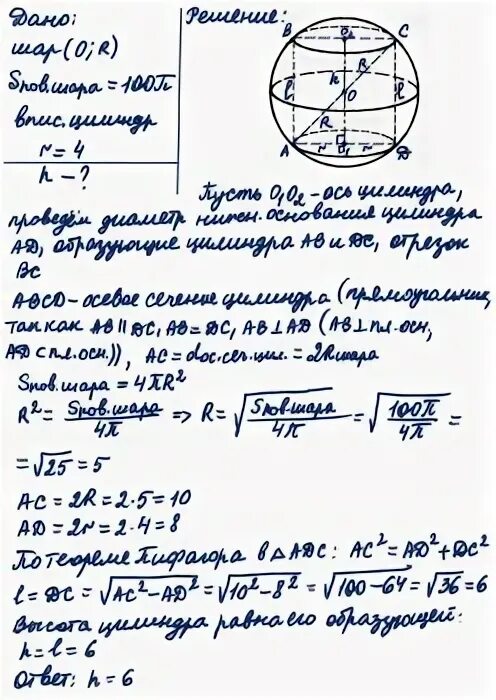 Дано:
шар (O; R)
Sпов.шара = 100π
впис. цилиндр
r = 4
h – ?
Решение:
B O₂ C
l h R l
O
R
A r O₁ r D
Пусть O₁O₂ – ось цилиндра,
проведём диаметр нижн. основания цилиндра
AD, образующие цилиндра AB и DC, отрезок
BC
ABCD – осевое сечение цилиндра (прямоугольник,
так как AB ∥ DC, AB = DC, AB ⊥ AD (AB ⊥ пл. осн,
AD ⊂ пл. осн.)), AC = d ос. сеч. цил. = 2Rшара
Sпов. шара = 4πR²
R² = Sпов. шара / 4π => R = √(Sпов. шара / 4π) = √(100π / 4π) =
= √25 = 5
AC = 2R = 2·5 = 10
AD = 2r = 2·4 = 8
По теореме Пифагора в △ADC: AC² = AD² + DC²
l = DC = √(AC² – AD²) = √(10² – 8²) = √(100 – 64) = √36 = 6
Высота цилиндра равна его образующей:
h = l = 6
Ответ: h = 6